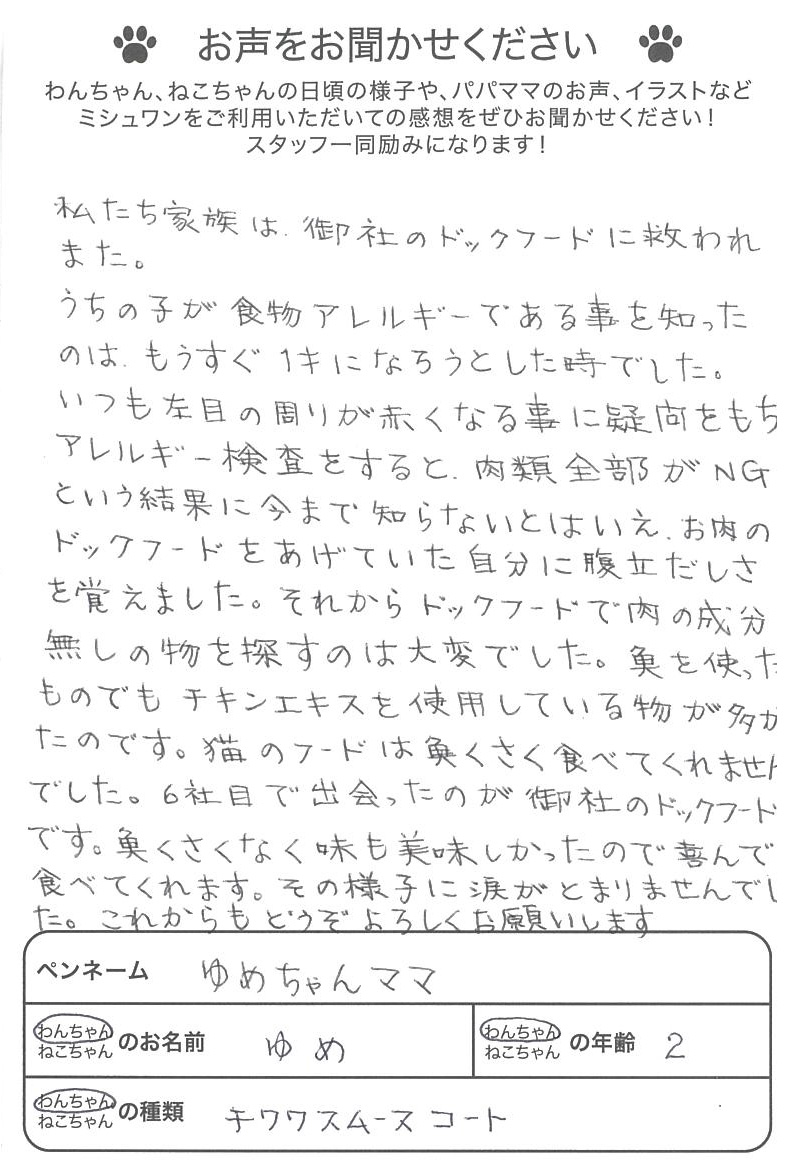 お声をお聞かせください
わんちゃん、ねこちゃんの日頃の様子や、パパママのお声、イラストなど
ミシュワンをご利用いただいての感想をぜひお聞かせください!
スタッフ一同励みになります!
私たち家族は、御社のドックフードに救われ
ました。
うちの子が食物アレルギーである事を知った
のは、もうすぐ1才になろうとした時でした。
いつも左目の周りが赤くなる事に疑問をもち
アレルギー検査をすると、肉類全部がNG
という結果に今まで知らないとはいえ、お肉の
ドックフードをあげていた自分に腹立だしさ
を覚えました。それからドックフードで肉の成分
無しの物を探すのは大変でした。魚を使った
ものでもチキンエキスを使用している物が多か
たのです。猫のフードは魚くさく食べてくれません
でした。6社目で出会ったのが御社のドックフード
です。魚くさくなく味も美味しかったので喜んで
食べてくれます。その様子に涙がとまりませんでし
た。これからもどうぞよろしくお願いします
ペンネーム ゆめちゃんママ
わんちゃん
ねこちゃん のお名前 ゆめ
わんちゃん
ねこちゃん の年齢 2
わんちゃん
ねこちゃん の種類 チワワスムースコート